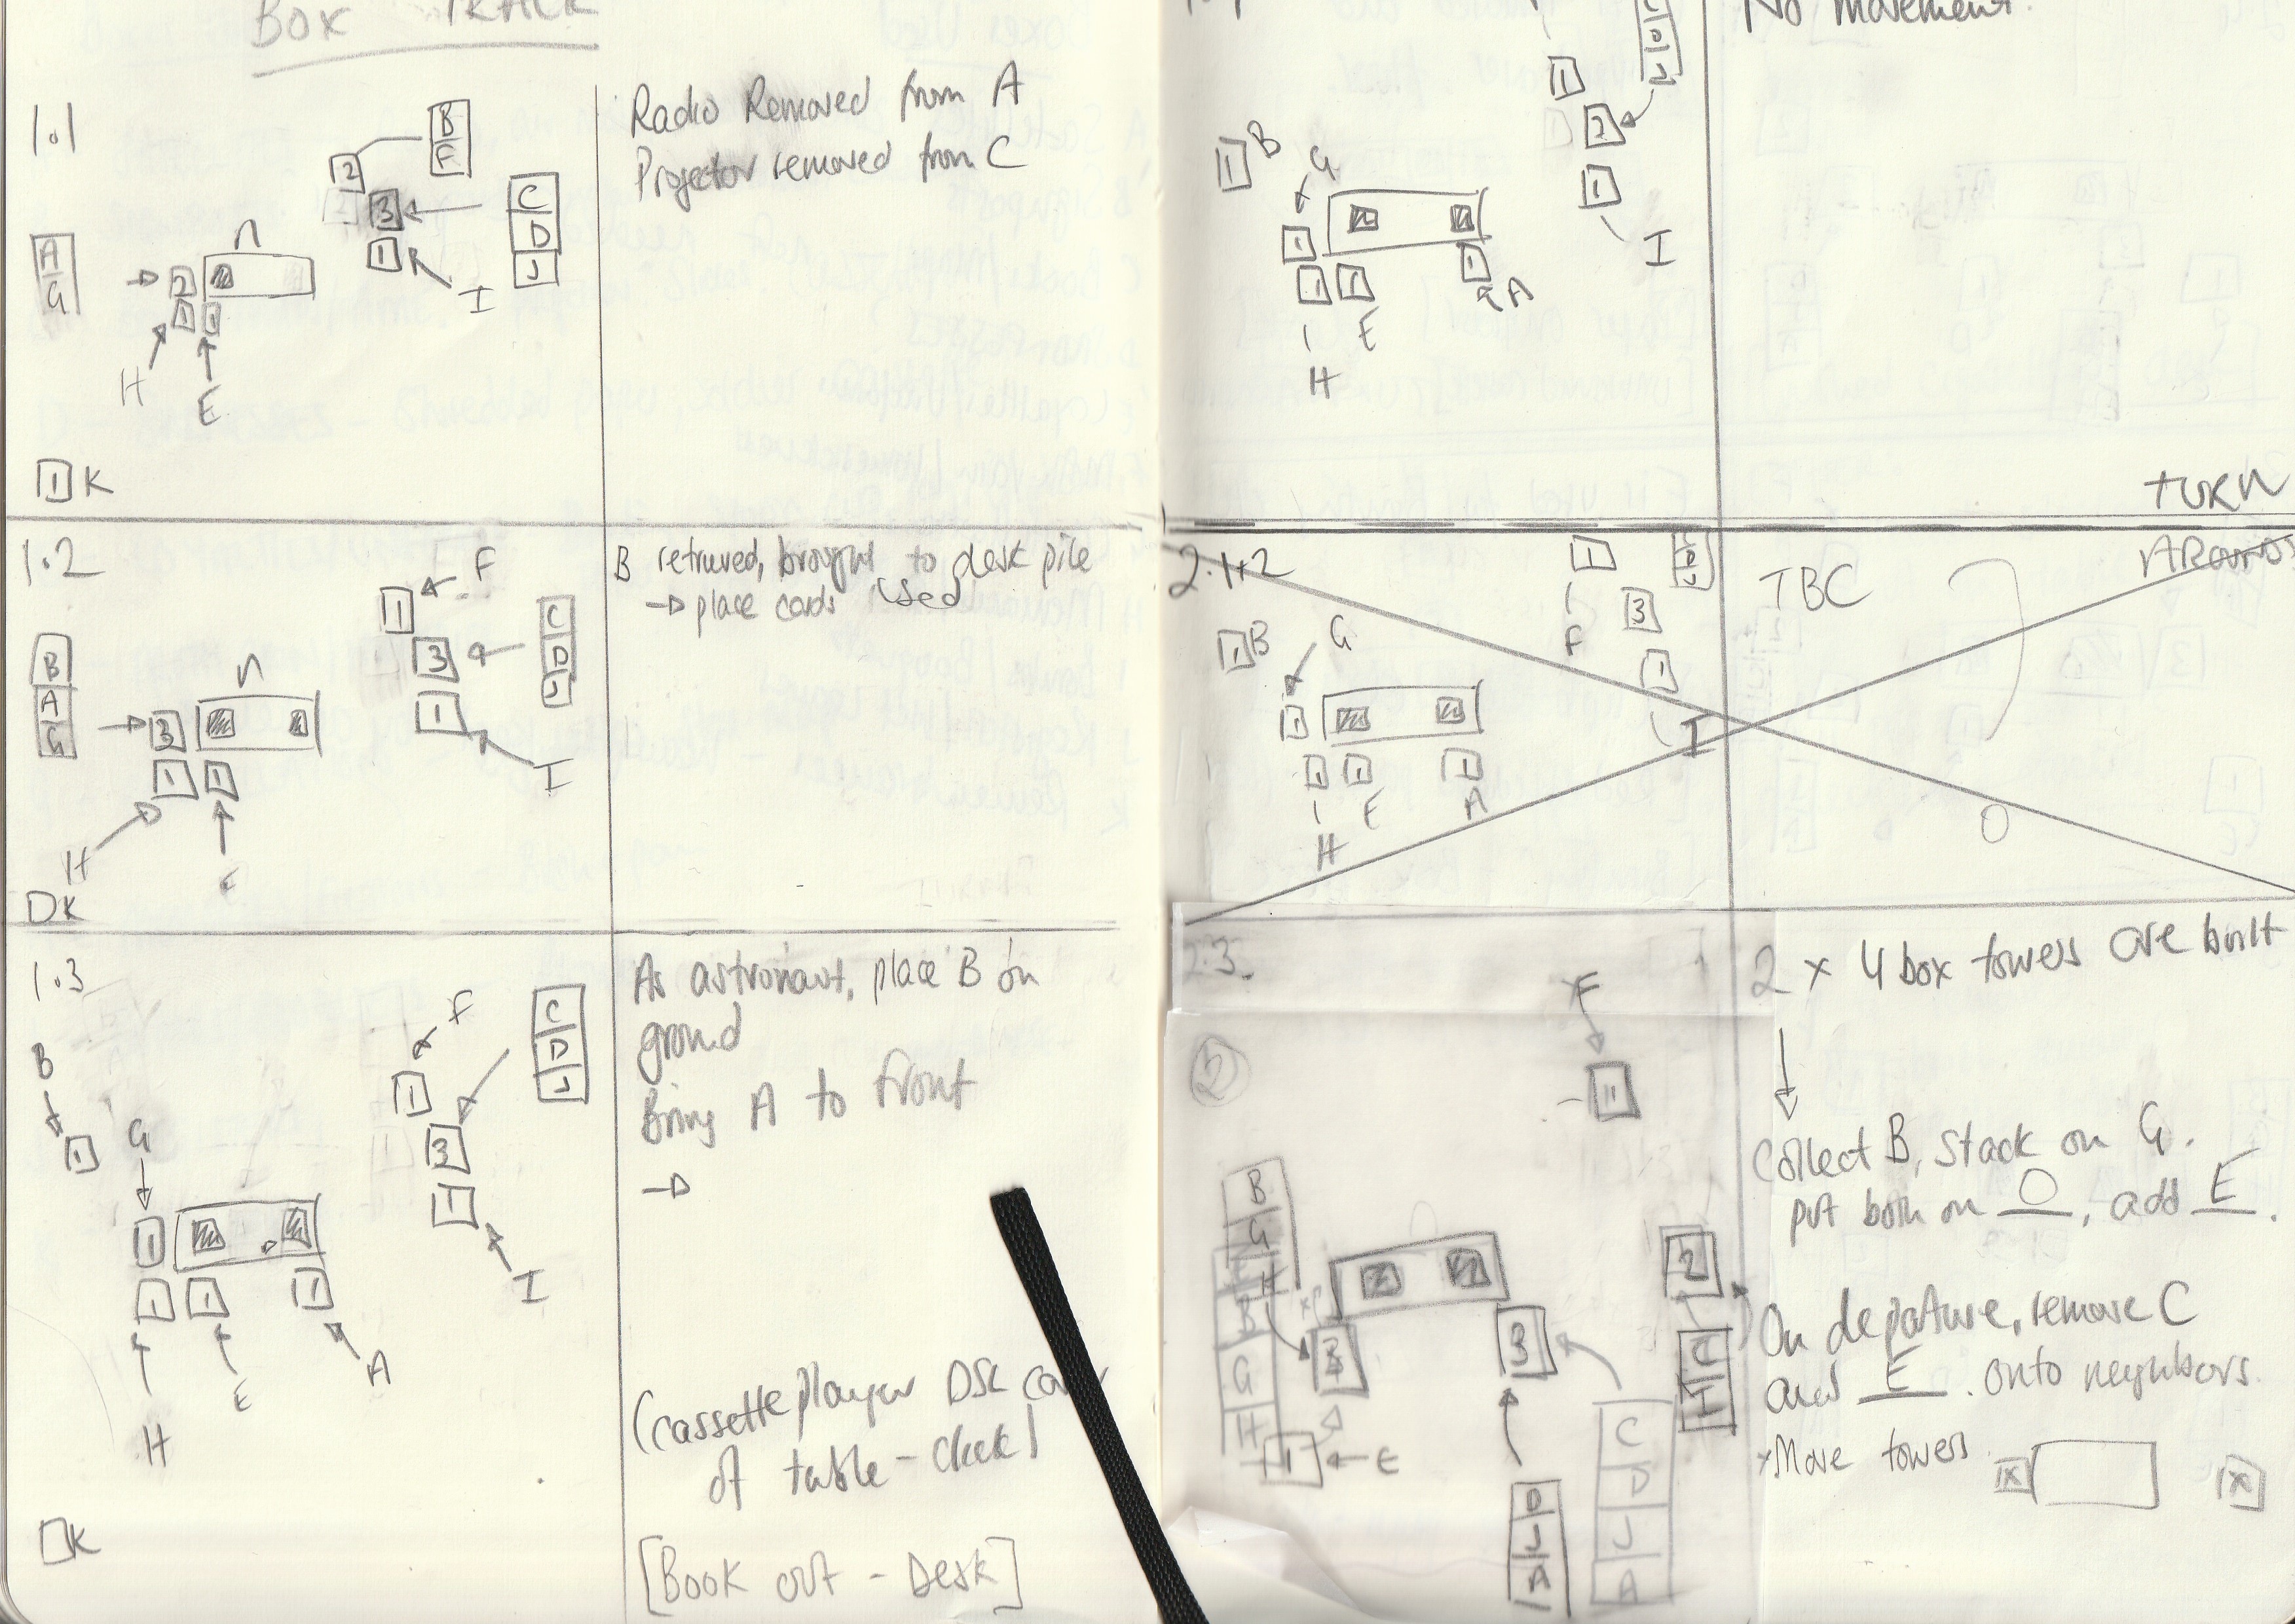 BOX TRACK
1.1
B
F
2
2
3
C
D
J
1
I
A
G
n
2
1
1
H
E
1 K
Radio Removed from A
Projector removed from C
1.2
F
1
3
C
D
J
1
I
B
A
G
n
3
1
1
H
K
B retrieved, brought to desk pile
→ place cards used
1.3
F
1
3
C
D
J
1
I
B
1
G
1
1
1
1
H
E
A
K
As astronaut, place B on
ground
Bring A to front
→
(cassette player Dsk
of table - check)
[Book out - Desk]
No movement
1
2
1
I
B
1
G
1
1
1
1
H
E
A
TURN
AROUND
2.1+2
TBC
F
1
3
1
I
B
1
G
1
1
1
1
H
E
A
2.3.
2
F
1
B
G
H
B
G
H
1
E
3
2
C
I
D
J
A
C
D
J
A
2 x 4 box towers are built
Collect B, stack on G.
put both on O, add E.
On departure, remove C
and E. onto neighbors.
Move towers
x
x